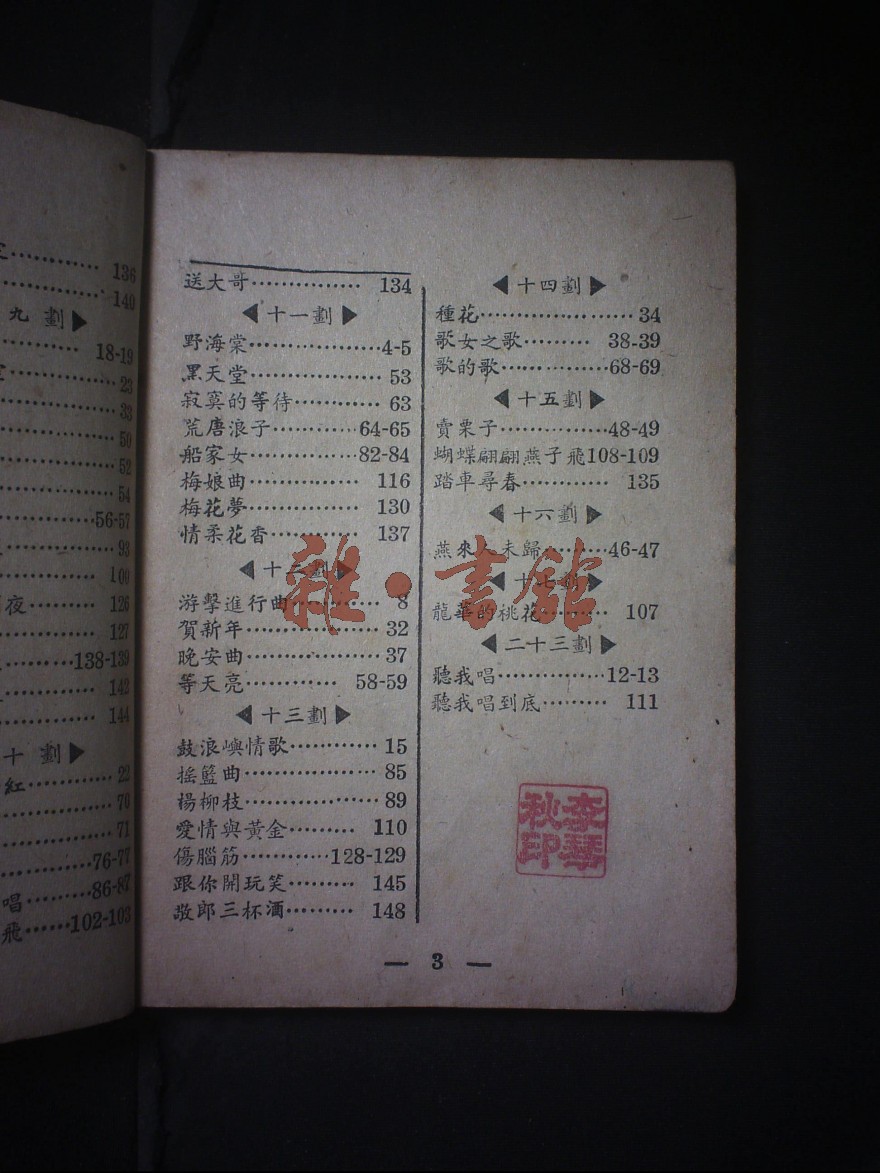 136
140
九劃▶
18-19
23
33
50
52
54
56-57
93
100
夜⋯⋯⋯126
127
138-139
142
144
十劃▶
紅⋯⋯⋯⋯22
70
71
76-77
唱⋯⋯⋯86-87
飛⋯⋯102-103
送大哥⋯⋯⋯⋯⋯134
◀十一劃▶
野海棠⋯⋯⋯⋯⋯⋯4-5
黑天堂⋯⋯⋯⋯⋯⋯53
寂寞的等待⋯⋯⋯⋯63
荒唐浪子⋯⋯⋯⋯64-65
船家女⋯⋯⋯⋯⋯82-84
梅娘曲⋯⋯⋯⋯⋯116
梅花夢⋯⋯⋯⋯⋯130
情柔花香⋯⋯⋯⋯137
◀十二劃▶
游擊進行曲⋯⋯⋯⋯8
賀新年⋯⋯⋯⋯⋯⋯32
晚安曲⋯⋯⋯⋯⋯⋯37
等天亮⋯⋯⋯⋯58-59
◀十三劃▶
鼓浪嶼情歌⋯⋯⋯⋯15
搖籃曲⋯⋯⋯⋯⋯⋯85
楊柳枝⋯⋯⋯⋯⋯⋯89
愛情與黃金⋯⋯⋯110
傷腦筋⋯⋯⋯⋯128-129
跟你開玩笑⋯⋯⋯145
敬郎三杯酒⋯⋯⋯148
◀十四劃▶
種花⋯⋯⋯⋯⋯⋯⋯34
歌女之歌⋯⋯⋯38-39
歌的歌⋯⋯⋯⋯⋯68-69
◀十五劃▶
賣栗子⋯⋯⋯⋯⋯48-49
蝴蝶翩翩燕子飛108-109
踏車尋春⋯⋯⋯⋯135
◀十六劃▶
燕來人未歸⋯⋯⋯46-47
◀十七劃▶
龍華的桃花⋯⋯⋯107
◀二十三劃▶
聽我唱⋯⋯⋯⋯⋯12-13
聽我唱到底⋯⋯⋯111
李琴秋印
— 3 —
雜·書館